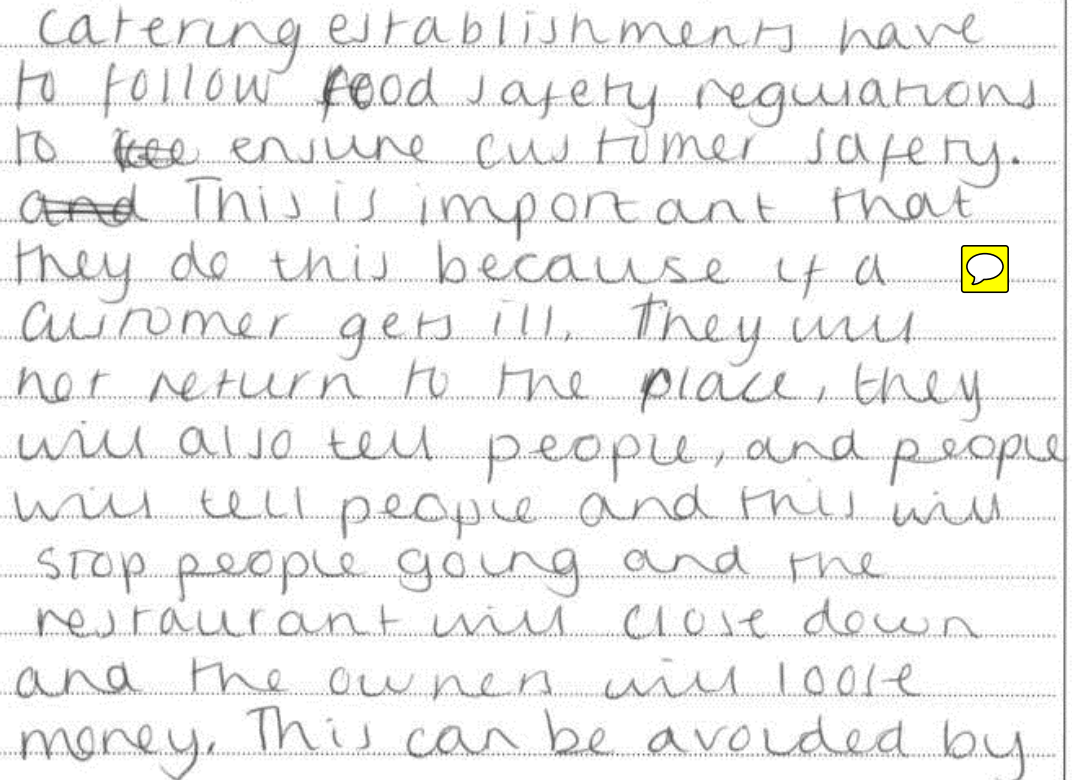 Catering establishments have
to follow food safety regulations
to ensure customer safety.
and This is important that
they do this because if a
customer gets ill. They will
not return to the place, they
will also tell people, and people
will tell people and this will
stop people going and the
restaurant will close down
and the owners will loose
money. This can be avoided by